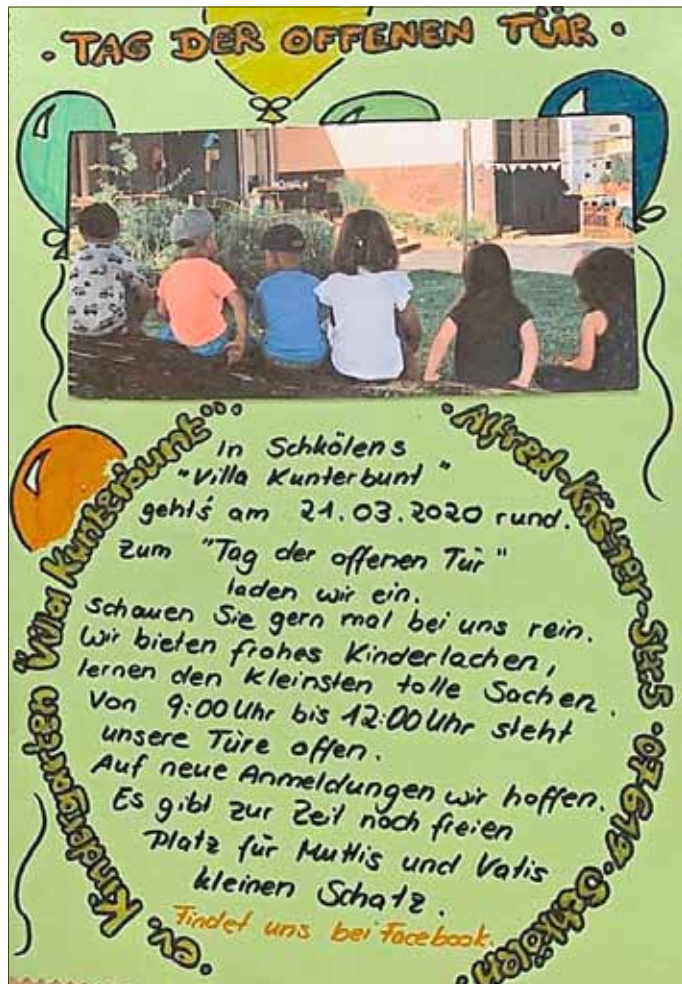 · TAG DER OFFENEN TÜR ·
ev. Kindergarten "Villa Kunterbunt"
· Alfred-Kästner-Str.5 · 07619 · Schkölen ·
In Schkölens
"Villa Kunterbunt"
geht's am 21.03.2020 rund.
Zum "Tag der offenen Tür"
laden wir ein.
Schauen Sie gern mal bei uns rein.
Wir bieten frohes Kinderlachen,
lernen den Kleinsten tolle Sachen.
Von 9:00 Uhr bis 12:00 Uhr steht
unsere Türe offen.
Auf neue Anmeldungen wir hoffen.
Es gibt zur Zeit noch freien
Platz für Muttis und Vatis
kleinen Schatz.
Findet uns bei Facebook.